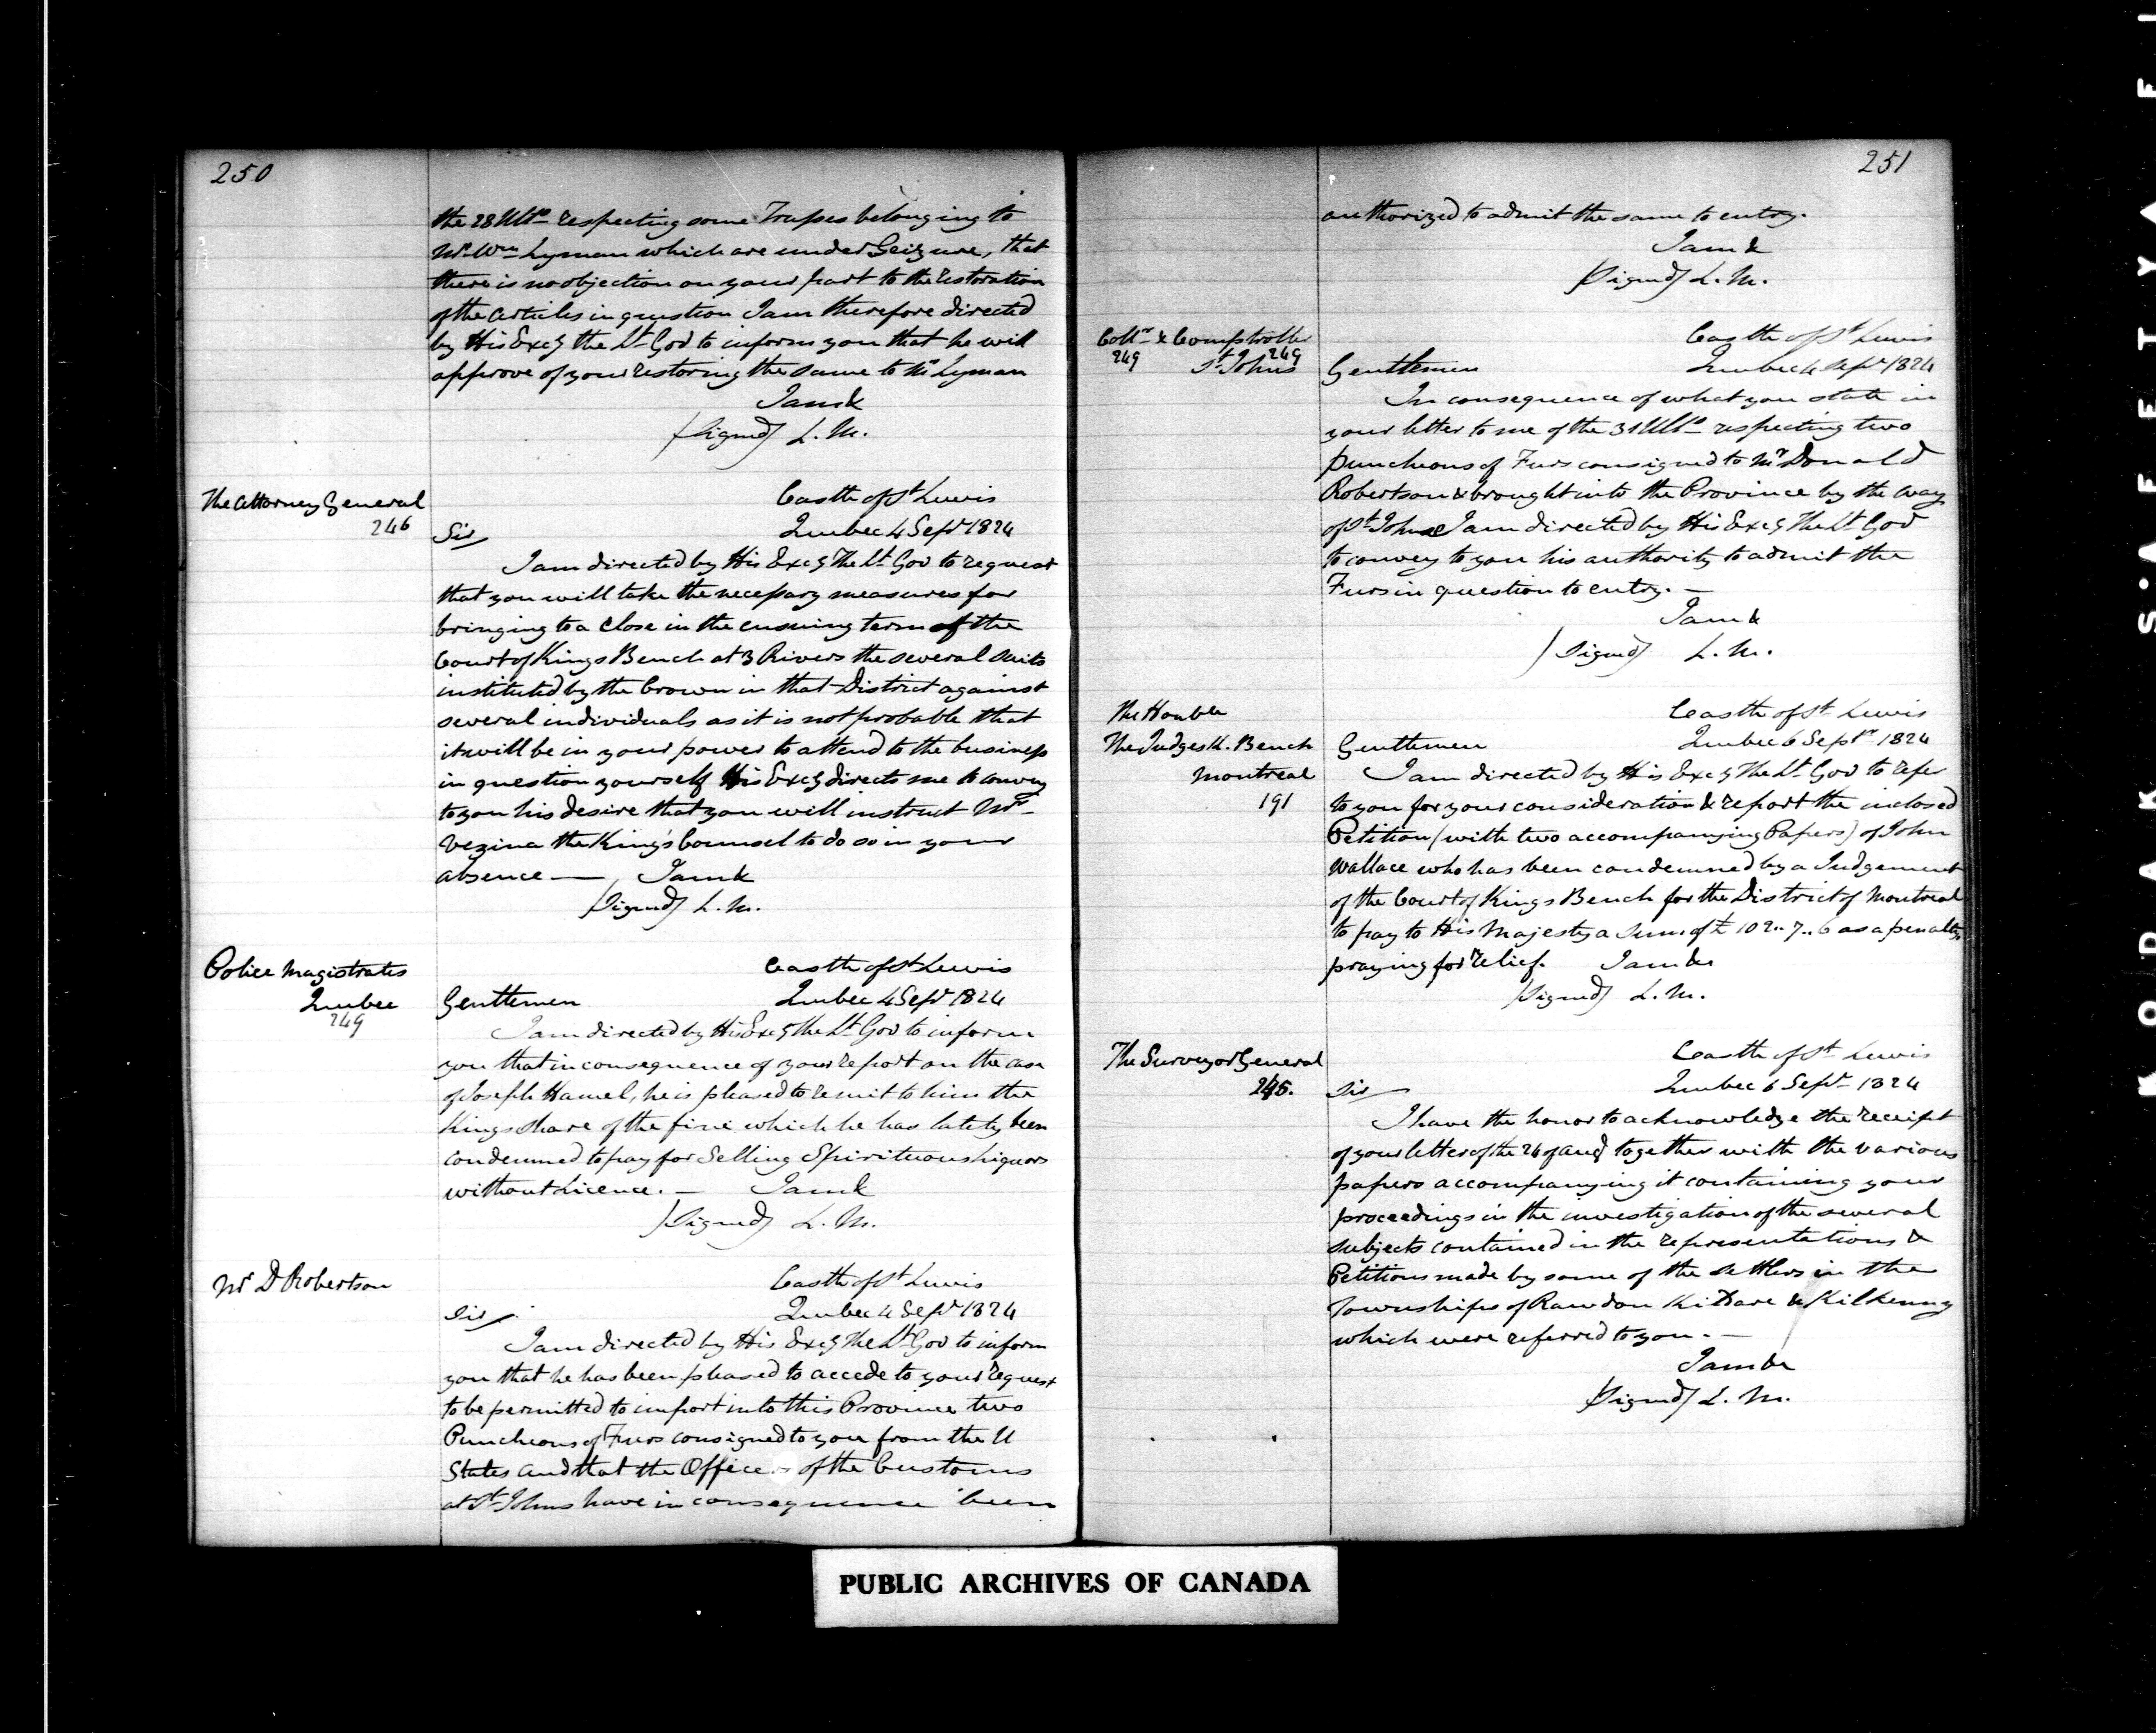 250
the 28 Ulto respecting some Trusses belonging to
Mr Wm Lyman which are under Seizure, that
there is no objection on your part to the restoration
of the articles in question I am therefore directed
by His Excy the Lt Gov to inform you that he will
approve of your restoring the same to Mr Lyman
I am &
(Signed) L. M.
The Attorney General
246
Castle of St Lewis
Quebec 4 Sepr 1824
Sir
I am directed by His Excy The Lt Gov to request
that you will take the necessary measures for
bringing to a close in the ensuing term of the
Court of Kings Bench at 3 Rivers the several suits
instituted by the Crown in that District against
several individuals as it is not probable that
it will be in your power to attend to the business
in question yourself His Excy directs me to convey
to you his desire that you will instruct Mr
Vezina the King's Counsel to do so in your
absence — I am &
(Signed) L. M.
Police Magistrates
Quebec
249
Castle of St Lewis
Quebec 4 Sepr 1824
Gentlemen
I am directed by His Excy The Lt Gov to inform
you that in consequence of your report on the case
of Joseph Hamel, he is pleased to remit to him the
Kings share of the fine which he has lately been
condemned to pay for Selling Spirituous Liquors
without Licence. — I am &
(Signed) L. M.
Mr D Robertson
Castle of St Lewis
Quebec 4 Sepr 1824
Sir
I am directed by His Excy The Lt Gov to inform
you that he has been pleased to accede to your request
to be permitted to import into this Province two
Puncheons of Furs consigned to you from the U
States and that the Officers of the Customs
at St Johns have in consequence been
251
authorized to admit the same to entry.
I am &
(Signed) L. M.
Collr & Comptroller
249 St Johns 249
Castle of St Lewis
Quebec 4 Sepr 1824
Gentlemen
In consequence of what you state in
your letter to me of the 31 Ulto respecting two
puncheons of Furs consigned to Mr Donald
Robertson & brought into the Province by the way
of St Johns I am directed by His Excy The Lt Gov
to convey to you his authority to admit the
Furs in question to entry. —
I am &
(Signed) L. M.
The Honble
The Judges K. Bench
Montreal
191
Castle of St Lewis
Quebec 6 Septr 1824
Gentlemen
I am directed by His Excy The Lt Gov to refer
to you for your consideration & report the inclosed
Petition (with two accompanying Papers) of John
Wallace who has been condemned by a Judgement
of the Court of Kings Bench for the District of Montreal
to pay to His Majesty a Sum of £ 102..7..6 as a penalty,
praying for relief. I am &c
(Signed) L. M.
The Surveyor General
245.
Castle of St Lewis
Quebec 6 Sepr 1824
Sir
I have the honor to acknowledge the receipt
of your letter of the 26 of Augt together with the various
papers accompanying it containing your
proceedings in the investigation of the several
subjects contained in the representations &
Petitions made by some of the settlers in the
Townships of Rawdon Kildare & Kilkenny
which were referred to you. —
I am &c
(Signed) L. M.
PUBLIC ARCHIVES OF CANADA
KODAK S'AFETY